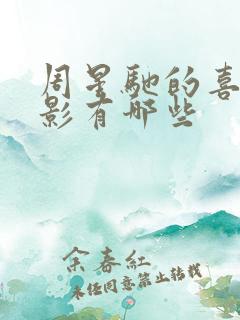 周星馳的喜
影有哪些
余春紅
未经同意禁止转载